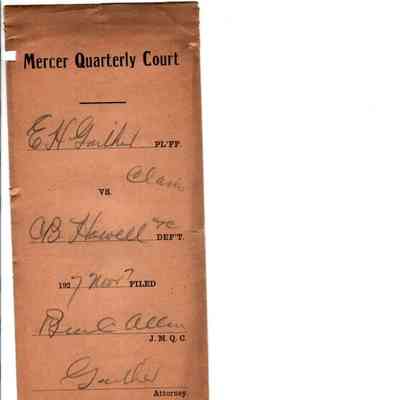 Mercer Quarterly Court
E H Gaither PL'FF.
Claim
VS.
C B Howell &c DEF'T.
1927 Nov 7 FILED
Ben C Allen
J. M. Q. C.
Gaither
Attorney.